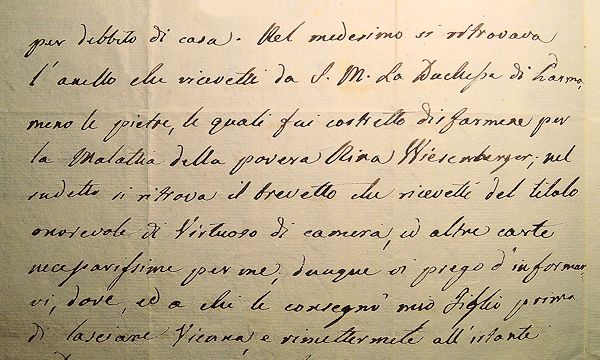 per debbito di casa. Nel medesimo si ritrovava
l'anello che ricevetti da S. M. La Duchessa di Parma,
meno le pietre, le quali fui costretto disfarmene per
la Malattia della povera Nina Wiesenberger; nel
sudetto si ritrova il brevetto che ricevetti del titolo
onorevole di Virtuoso di camera, ed altre carte
necessarissime per me, dunque vi prego d'informar-
vi, dove, ed a chi le consegnò mio Figlio prima
di lasciare Vienna, e rimettermete all'istante